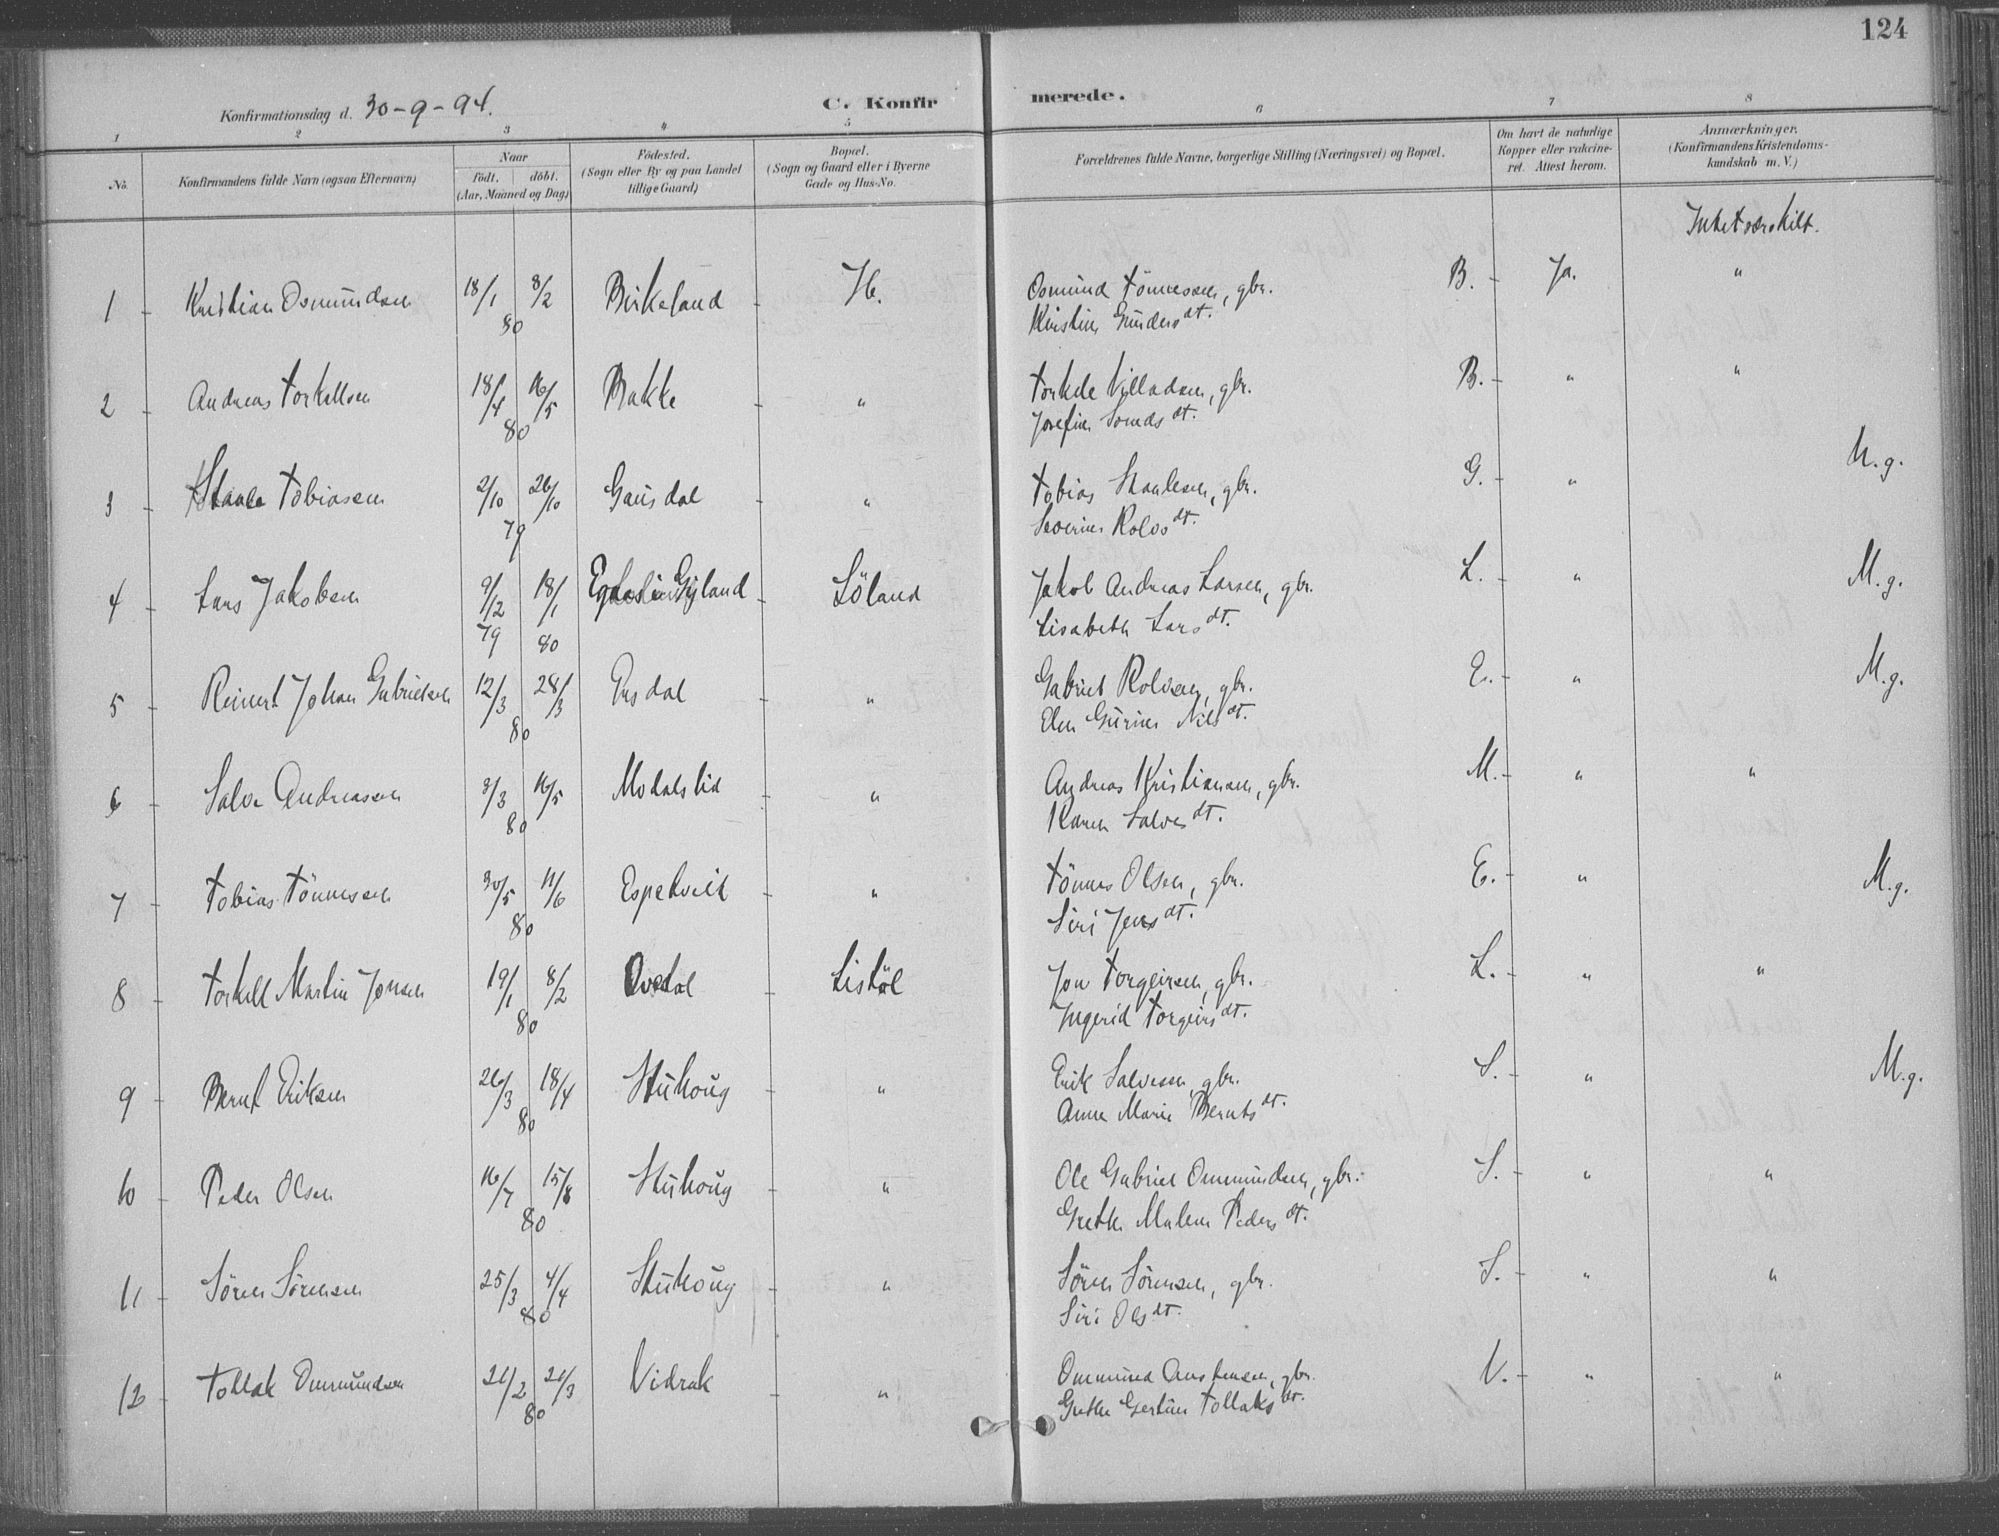 124
Konfirmationsdag d. 30-9-94.
C. Konfir merede.
1 2 3 4 5 6 7 8
No.
Konfirmandens fulde Navn (ogsaa Efternavn)
Naar
födt. döbt.
(Aar, Maaned og Dag)
Födested.
(Sogn eller By og paa Landet
tillige Gaard)
Bopæl.
(Sogn og Gaard eller i Byerne
Gade og Hus-No.
Forældrenes fulde Navne, borgerlige Stilling (Næringsvei) og Bopæl.
Om havt de naturlige
Kopper eller vakcine-
ret. Attest herom.
Anmærkninger.
(Konfirmandens Kristendoms-
kundskab m. V.)
Intet særskilt.
1 - Kristian Osmundsen 18/1 8/2 Birkeland - Osmund Tönnessen, gbr. B. - Ja. "
80 Kirstine Gunders dt.
2 - Andreas Torkellsen 18/4 16/5 Bakke - " Torkele Villadsen, gbr. B. - " "
80 Josefine dt.
3 - Staale Tobiasen 2/10 26/10 Gausdal - " Tobias Staalesen, gbr. G. - " M.g.
79 Severine Rolvs dt.
4 - Lars Jakobsen 9/12 18/1 Gyland - Löland Jakob Andreas Larsen, gbr. L. - " M.g.
79 80 Lisabeth Lars dt.
5 - Reinert Johan Gabrielsen 12/3 28/3 - " Gabriel Rolvsen, gbr. E. - " M.g.
80 Elen Gurine Nils dt.
6 - Salve Andreasen 3/3 16/5 Modalslid - " Andreas Kristiansen, gbr. M. - " "
80 Karen Salves dt.
7 - Tobias Tönnesen 30/5 11/6 Espetveit - " Tönnes Olsen, gbr. E. - " M.g.
80 Siri Jens dt.
8 - Torkell Martin Jonsen 19/1 8/2 Ovedal - Listöl Jon Torgeirsen, gbr. L. - " "
80 Ingerid Torgeirs dt.
9 - Bernt Eriksen 26/3 18/4 Stuhoug - " Erik Salvesen, gbr. S. - " M.g.
80 Anne Marie Bernts dt.
10 - Peder Olsen 16/7 15/8 Stuhoug - " Ole Gabriel Ommundsen, gbr. S. - " "
80 Grethe Malene Peders dt.
11 - Sören Sörensen 25/3 4/4 Stuhoug - " Sören Sörensen, gbr. S. - " "
80 Siri Ols dt.
12 - Tollak Ommundsen 21/2 21/3 Vidrak - " Ommund Austensen, gbr. V. - " "
80 Grethe Gertine Tollaks dt.